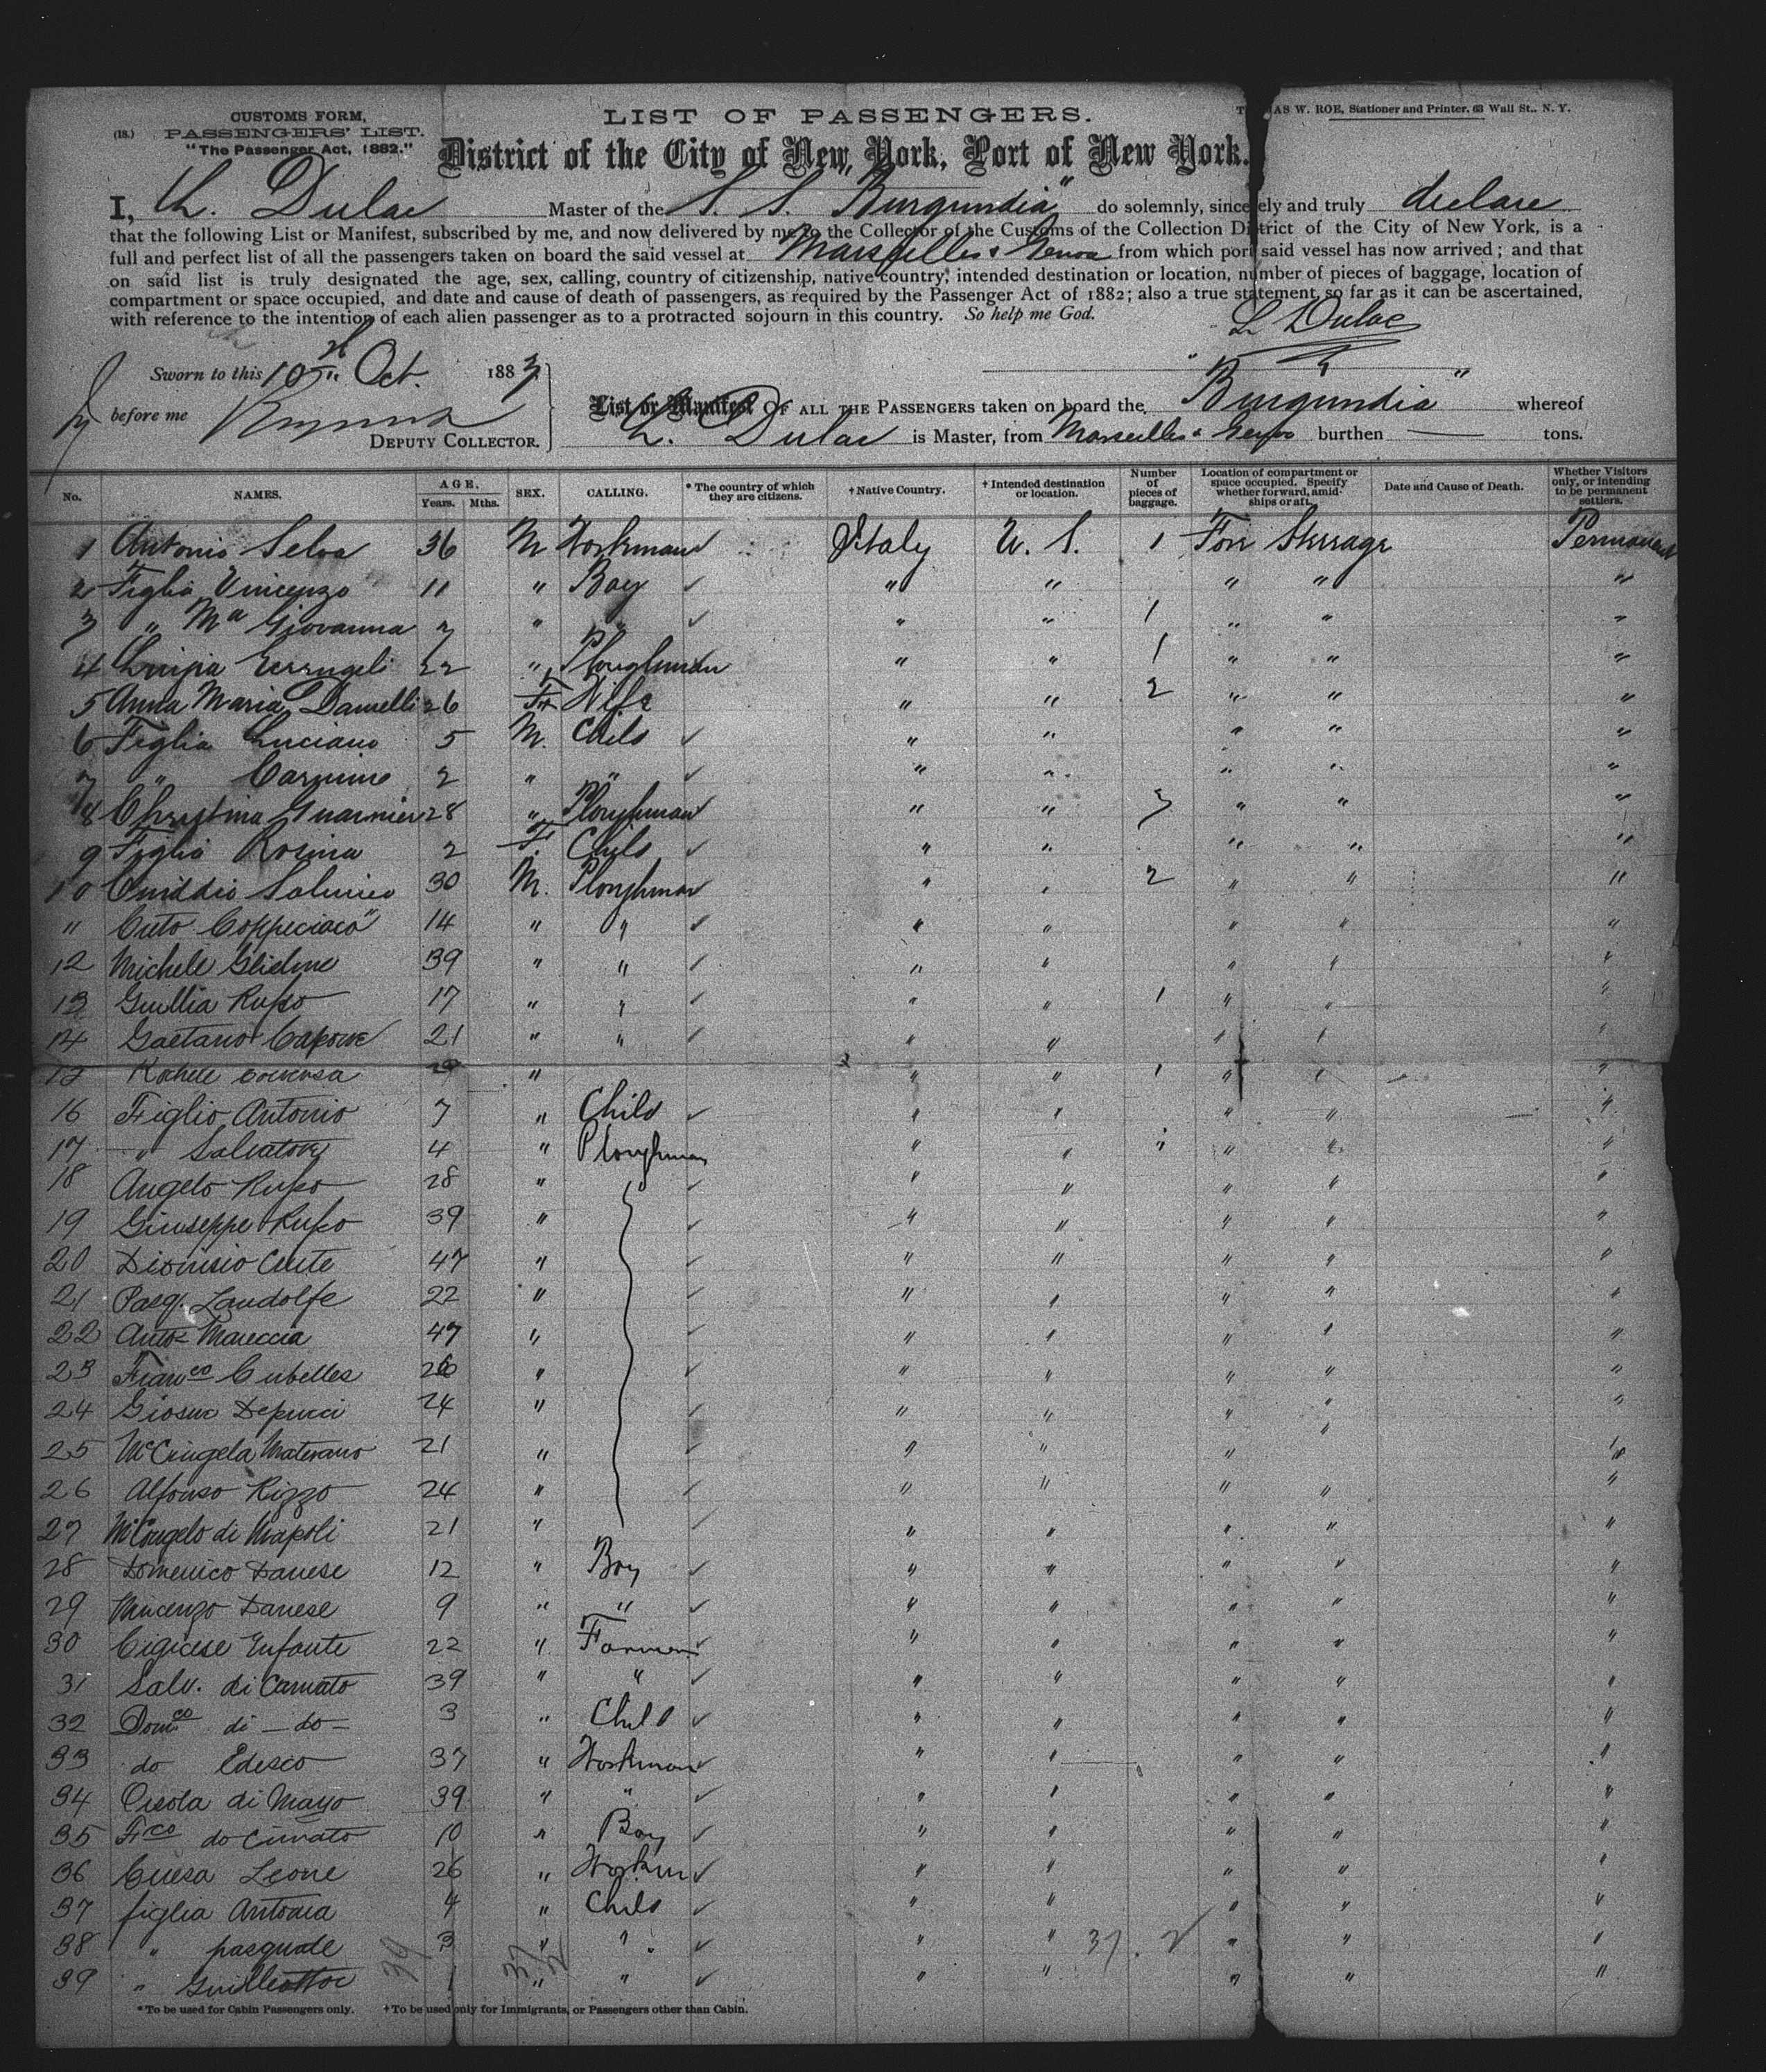 CUSTOMS FORM,
(18.) PASSENGERS' LIST.
"The Passenger Act, 1882."
LIST OF PASSENGERS.
AS W. ROE, Stationer and Printer. 63 Wall St., N. Y.
District of the City of New York, Port of New York.
I, L. Dulac Master of the S. S. "Burgundia" do solemnly, sincerely and truly declare
that the following List or Manifest, subscribed by me, and now delivered by me to the Collector of the Customs of the Collection District of the City of New York, is a
full and perfect list of all the passengers taken on board the said vessel at Marseilles & Genoa from which port said vessel has now arrived; and that
on said list is truly designated the age, sex, calling, country of citizenship, native country, intended destination or location, number of pieces of baggage, location of
compartment or space occupied, and date and cause of death of passengers, as required by the Passenger Act of 1882; also a true statement, so far as it can be ascertained,
with reference to the intention of each alien passenger as to a protracted sojourn in this country. So help me God.
L Dulac
Sworn to this 10th Oct. 1883
before me
DEPUTY COLLECTOR.
List or Manifest OF ALL THE PASSENGERS taken on board the "Burgundia" whereof
L. Dulac is Master, from Marseilles & Genoa burthen — tons.
No. NAMES. AGE. Years. Mths. SEX. CALLING. * The country of which they are citizens. † Native Country. † Intended destination or location. Number of pieces of baggage. Location of compartment or space occupied. Specify whether forward, amidships or aft. Date and Cause of Death. Whether Visitors only, or intending to be permanent settlers.
1 Antonio Selva 36 M Workman Italy U. S. 1 Forr Sterrage Permanent
2 Figlio Vincenzo 11 " Boy " " " " "
3 " Ma Giovanna " " " 1 " " "
4 22 " Ploughman " " 1 " " "
5 Anna Maria Danielli 26 F Wife " " 2 " " "
6 Figlia Luciano 5 M. Child " " " " "
7 " Carmino 2 " " " " " " "
8 Christina Guarnier 28 " Ploughman " " 3 " " "
9 Figlia Rosina 2 F. Child " " " " "
10 30 M. Ploughman " " 2 " " "
" Cuto 14 " " " " " " "
12 Michele 39 " " " " " " "
13 Giullia Russo 17 " " " " 1 " " "
14 Gaetano Capone 21 " " " " " " "
15 Rachele " " " 1 " " "
16 Figlio Antonio 7 " Child " " " " "
17 " Salvatore 4 " Ploughman " " " " "
18 Angelo Russo 28 " " " " " "
19 Giuseppe Russo 39 " " " " " "
20 Dionisio Cute 47 " " " " " "
21 Pasq. Landolfe 22 " " " " " "
22 Anto Maueccia 47 " " " " " "
23 Franco Cubelles 26 " " " " " "
24 Giosue Depucci 24 " " " " " "
25 Materano 21 " " " " " "
26 Alfonso Rizzo 24 " " " " " "
27 di Napoli 21 " " " " " "
28 Domenico Danese 12 " Boy " " " " "
29 Vincenzo Danese 9 " " " " " " "
30 Enfante 22 " Farmer " " " " "
31 Salv. di Camato 39 " " " " " " "
32 Domco di - do - 3 " Child " " " " "
33 do Edesco 37 " Workman " " " " "
34 di Mayo 39 " " " " " " "
35 Fco do Cumato 10 " Boy " " " " "
36 Leone 26 " " " " " "
37 figlia Antonia 4 " Child " " " " "
38 " pasquale 3 " " " " " " "
39 " 1 " " " " " " "
* To be used for Cabin Passengers only. † To be used only for Immigrants, or Passengers other than Cabin.